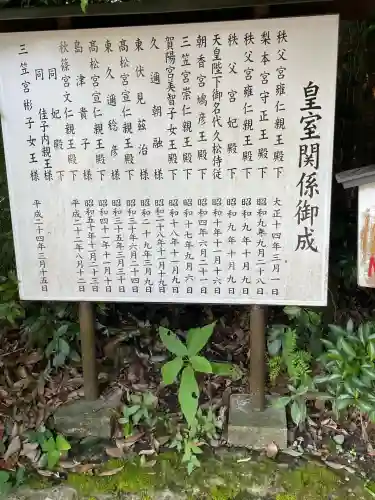 皇室関係御成
秩父宮雍仁親王殿下 大正十四年三月一日
梨本宮守正王殿下 昭和九年九月二十八日
秩父宮雍仁親王殿下 昭和九年十月九日
秩父宮妃殿下 昭和九年十月九日
天皇陛下御名代久松侍従 昭和十年十一月十六日
朝香宮鳩彦王殿下 昭和四年六月二十一日
三笠宮崇仁親王殿下 昭和十七年九月六日
賀陽宮美智子女王殿下 昭和十八年十一月九日
久邇朝融様 昭和二十八年十一月十九日
東伏見慈洽様 昭和二十九年三月九日
東久邇稔彦様 昭和三十年六月二十四日
高松宮宣仁親王殿下 昭和三十五年三月三十日
高松宮宣仁親王殿下 昭和四十二年十一月十日
島津貴子様 昭和五十年十月二十三日
秋篠宮文仁親王殿下 平成二十二年八月十二日
同 妃殿下
同 佳子内親王様
三笠宮彬子女王様 平成二十四年三月十五日